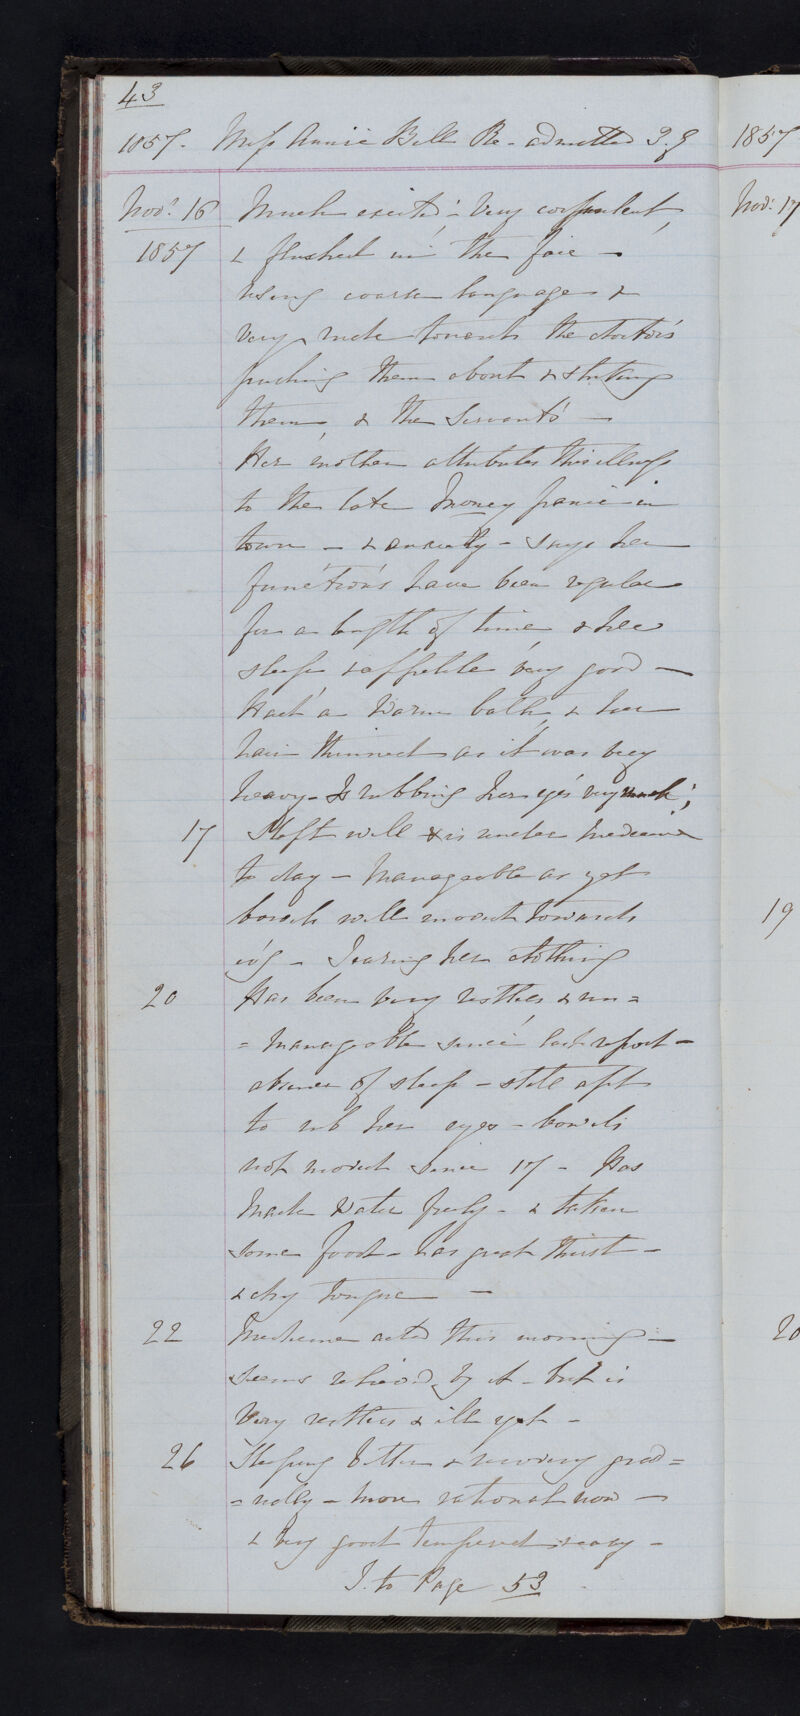 43
1857. Miss Annie Bell Re-admitted
Nov.r 16 Much excited - Very corpulent,
1857 & flushed in the face -
using coarse language &
very rude towards the doctors
pushing them about & striking
them, & the Servants -
Her mother attributes this illness
to the late Money panic in
town - & anxiety - says her
functions have been regular
for a length of time & her
sleep & appetite very good -
Had a Warm bath, & her
hair thinned as it was very
heavy - Is rubbing her eyes very much;
17 Slept well & is under Medicine
to day - Manageable as yet
bowels well moved towards
evg - Tearing her clothing
20 Has been very restless & un=
=manageable since last report -
absence of sleep - still apt
to rub her eyes - bowels
not moved since 17 - Has
Made Water freely - & taken
some food - has great thirst -
& dry tongue -
22 Medicine acted this morning -
seems relieved by it - but is
Very restless & ill yet -
26 Sleeping better & reviving grad=
=ually - more rational now -
& very good tempered & easy -
T. to Page 53
1857
Nov: 17
19
20